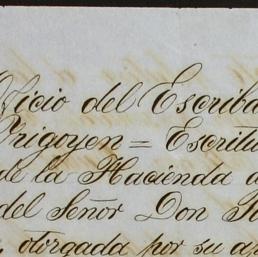 Oficio del Escriba
Yrigoyen = Escritu
de la Hacienda d
del Señor Don
otorgada por su ap